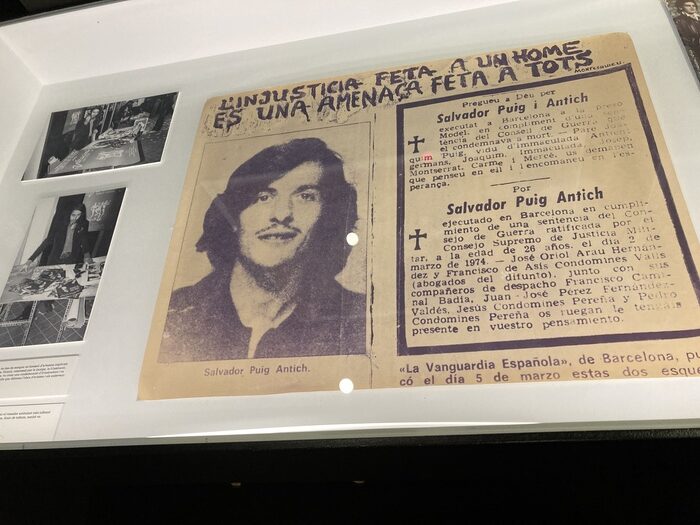 L'INJUSTICIA FETA A UN HOME
ÉS UNA AMENAÇA FETA A TOTS
Montesquieu.
Pregueu a Déu per
Salvador Puig i Antich
executat a Barcelona a la presó
Model, en compliment d'una sen-
tència del Consell de Guerra que
el condemnava a mort. — Pare, Joa-
quim Puig, vidu d'Immaculada Antich;
germans, Joaquim, Immaculada, Josep,
Montserrat, Carme i Mercè, us demanen
que penseu en ell i l'encomaneu en l'es-
perança.
Por
Salvador Puig Antich
ejecutado en Barcelona en cumpli-
miento de una sentencia del Con-
sejo de Guerra ratificada por el
Consejo Supremo de Justicia Mili-
tar, a la edad de 26 años, el día 2 de
marzo de 1974. — José Oriol Arau Hernán-
dez y Francisco de Asís Condomines Valls
(abogados del difunto), junto con sus
compañeros de despacho Francisco Cami-
nal Badía, Juan-José Pérez Fernández,
Valdés, Jesús Condomines Pereña y Pedro
Condomines Pereña os ruegan le tengáis
presente en vuestro pensamiento.
Salvador Puig Antich.
«La Vanguardia Española», de Barcelona, pu
có el día 5 de marzo estas dos esque